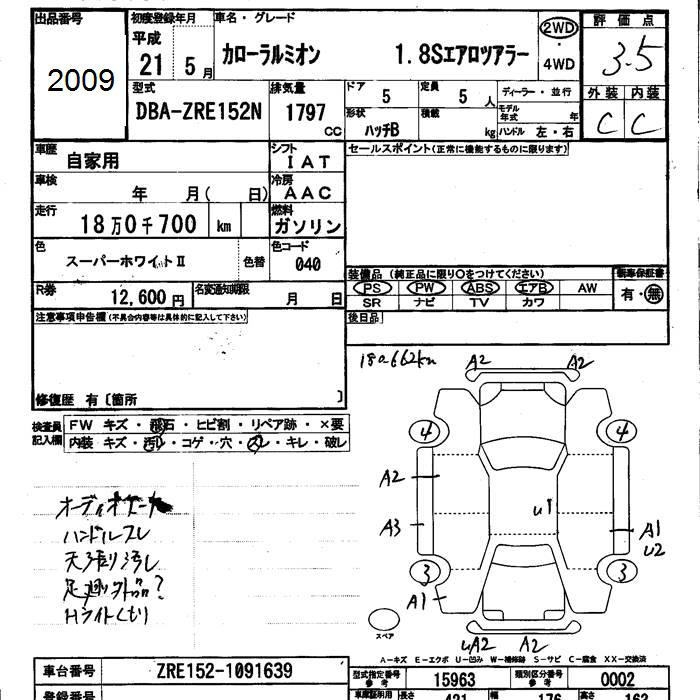 出品番号 初度登録年月 車名・グレード 2WD 評価点
2009 平成 カローラルミオン 1.8Sエアロツアラー 4WD 3.5
21年 5月
型式 排気量 ドア 5 定員 5人 ディーラー・並行 外装 内装
DBA-ZRE152N 1797cc 形状 ハッチB 積載 kg モデル年式 年 C C
ハンドル 左・右
車歴 自家用 シフト IAT セールスポイント(正常に機能するものに限ります)
車検 年 月( 日) 冷房 AAC
走行 18万0千700 km 燃料 ガソリン
色 スーパーホワイトⅡ 色替 色コード 040
装備品 (純正品に限り○をつけてください) 新車保証書
PS PW ABS エアB AW 有・無
SR ナビ TV カワ
R券 12,600円 名変通知期限 月 日
注意事項申告欄(不具合内容等は具体的に記入して下さい) 後日品
修復歴 有〔箇所 〕
180662km A2 A2
検査員記入欄 FW キズ・飛石・ヒビ割・リペア跡・×要
内装 キズ・汚レ・コゲ・穴・スレ・キレ・破レ
4 4
A2
U1
A3 A1
U2
3 3
A1
スペア
UA2 A2
ハンドルスレ
天張り汚し
足廻り外品?
Hライトくもり
A-キズ E-エクボ U-凹み W-補修跡 S-サビ C-腐食 XX-交換済
車台番号 ZRE152-1091639 型式指定番号 参考 15963 類別区分番号 参考 0002
登録番号 車庫証明用 長さ 421 幅 176 高さ 162